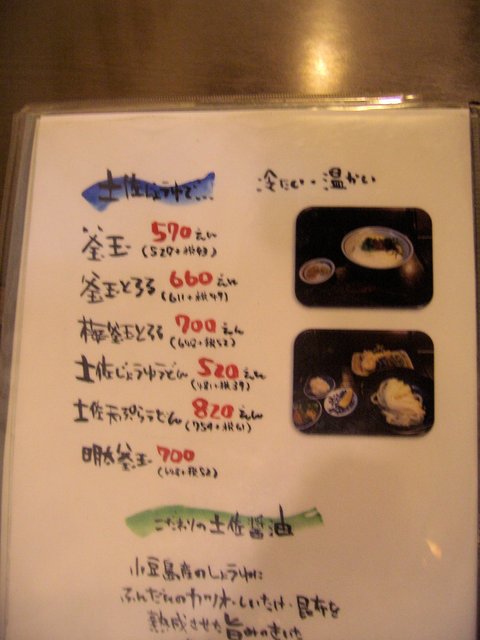 土佐じょうゆで… 冷たい・温かい
釜玉 570えん
(528+税43)
釜玉とろろ 660えん
(611+税49)
梅釜玉とろろ 700えん
(648+税52)
土佐じょうゆうどん 520えん
(481+税39)
土佐天ぷらうどん 820えん
(759+税61)
明太釜玉 700
(648+税52)
こだわりの土佐醤油
小豆島産のしょうゆに
ふんだんのカツオ・しいたけ・昆布を
熟成させた旨みのきいた